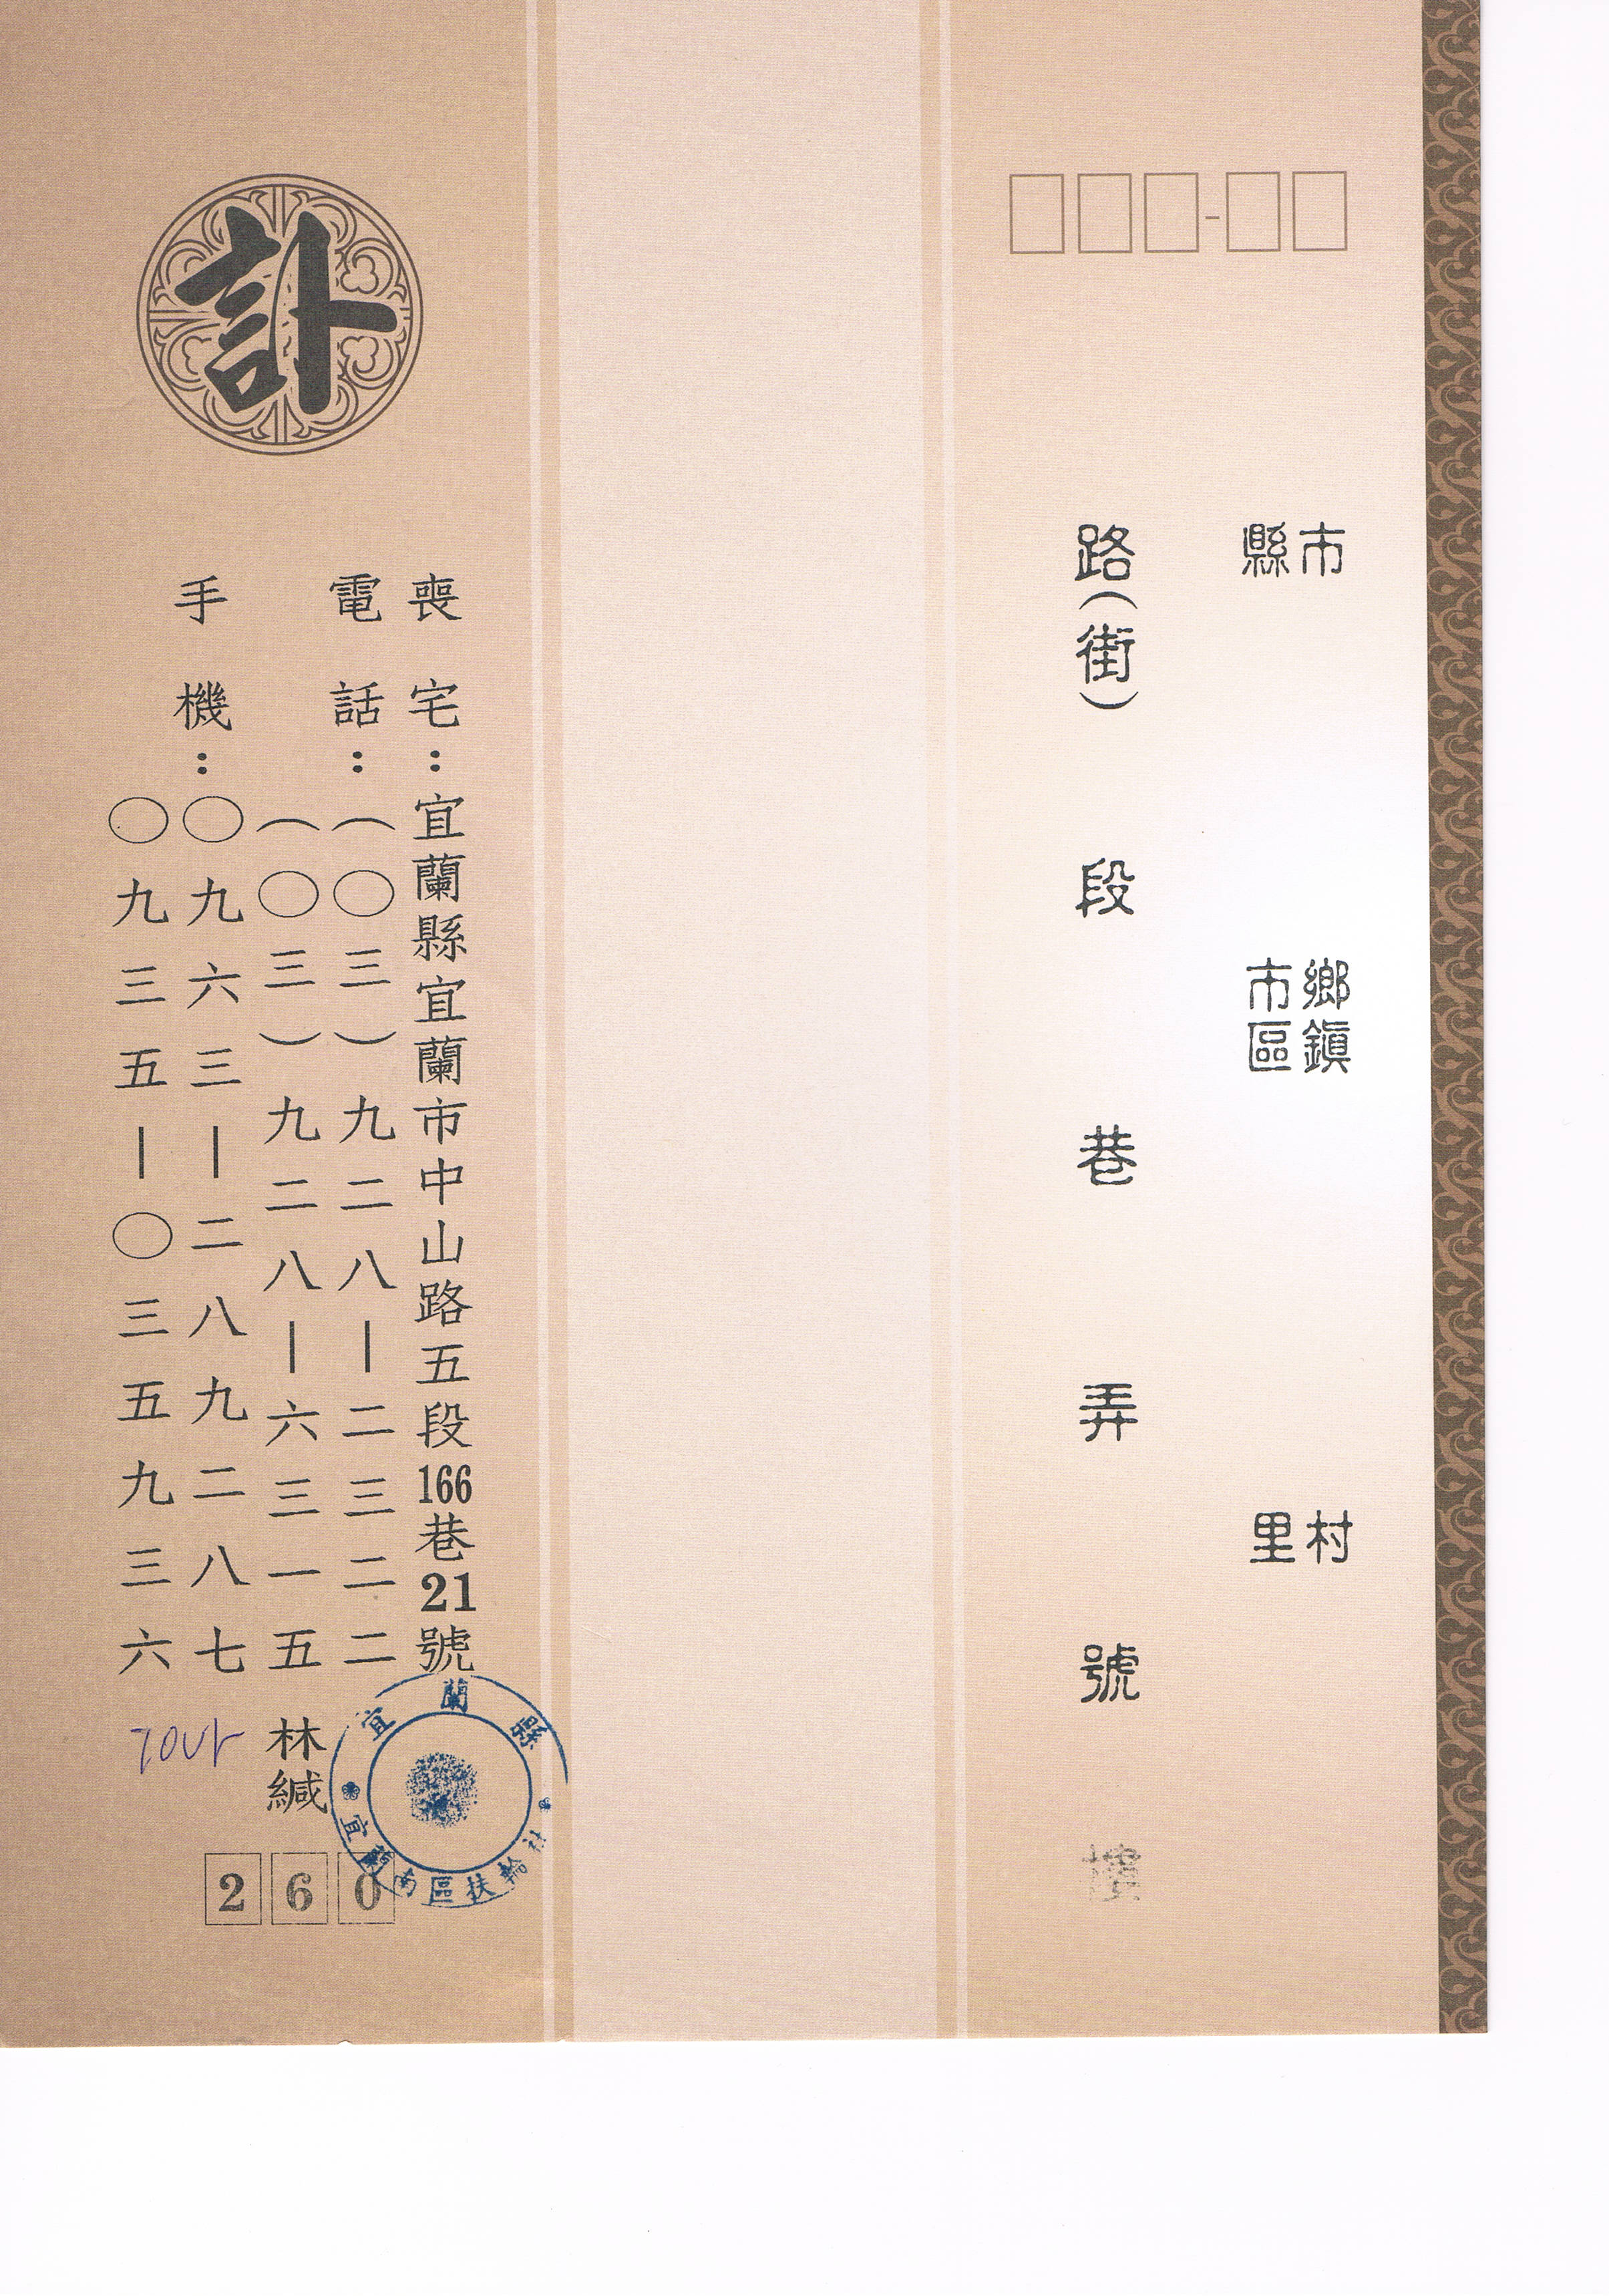 市縣
鄉鎮市區
村里
路(街)段巷弄號樓
訃
喪宅：宜蘭縣宜蘭市中山路五段166巷21號
電話：(〇三)九二八－二三二二
(〇三)九二八－六三一五
手機：〇九六三－二八九二八七
〇九三五－〇三五九三六
林緘
260
宜蘭縣
宜蘭南區扶輪社